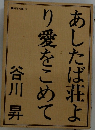 あしたば荘よ
り愛をこめて
谷川 昇